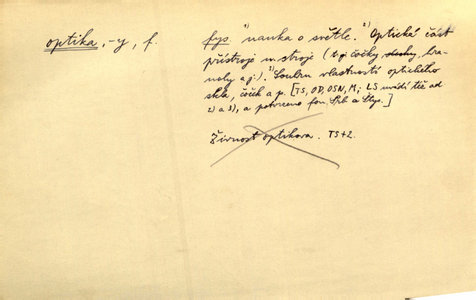 optika, -y, f.
fys. 1) nauka o světle. 2) Optická část
přístroje n. stroje (tj. čočky, hra-
noly a j.). 3) Souhrn vlastností optického
skla, čoček a p. [TS, OD, OSN, M; LS uvádí též ad
2) a 3), a potvrzeno fon. Srb a Štys.]
Živnost optikova. TS+2.